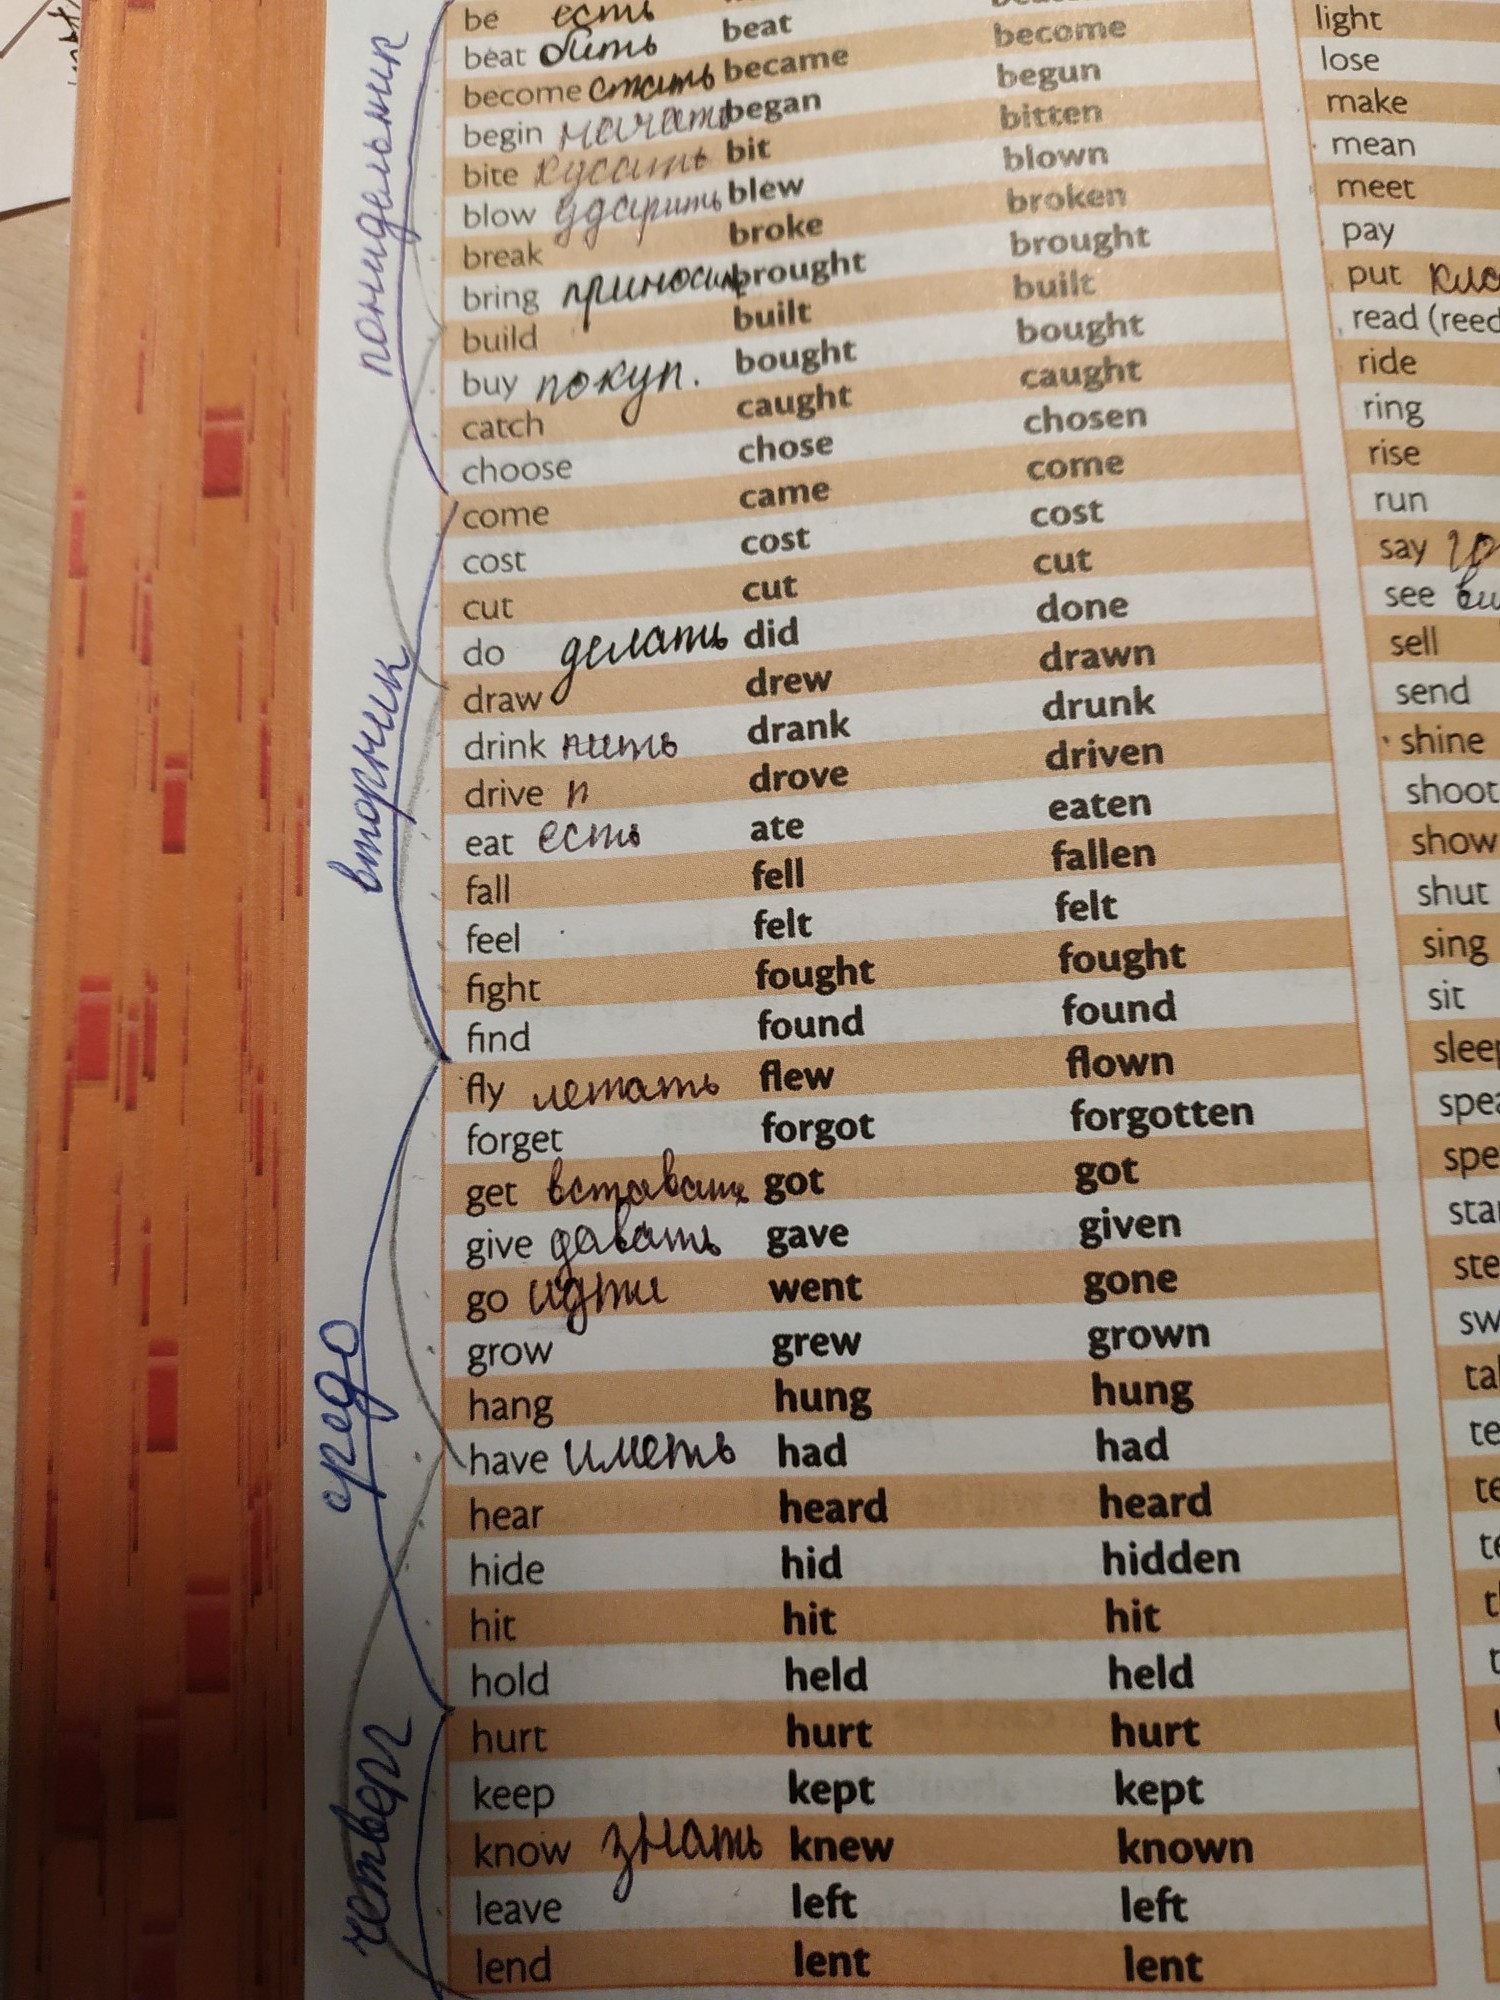 понидельник
вторник
среда
четверг
be есть
beat бить beat become
become стать became begun
begin начать began bitten
bite куссать bit blown
blow ударить blew broken
break broke brought
bring приносить brought built
build built bought
buy покуп. bought caught
catch caught chosen
choose chose come
come came cost
cost cost cut
cut cut done
do делать did drawn
draw drew drunk
drink пить drank driven
drive п drove eaten
eat есть ate fallen
fall fell felt
feel felt fought
fight fought found
find found flown
fly летать flew forgotten
forget forgot got
get вставать got given
give давать gave gone
go идти went grown
grow grew hung
hang hung had
have иметь had heard
hear heard hidden
hide hid hit
hit hit held
hold held hurt
hurt hurt kept
keep kept known
know знать knew left
leave left lent
lend lent
light
lose
make
mean
meet
pay
put
read (reed
ride
ring
rise
run
say
see
sell
send
shine
shoot
show
shut
sing
sit